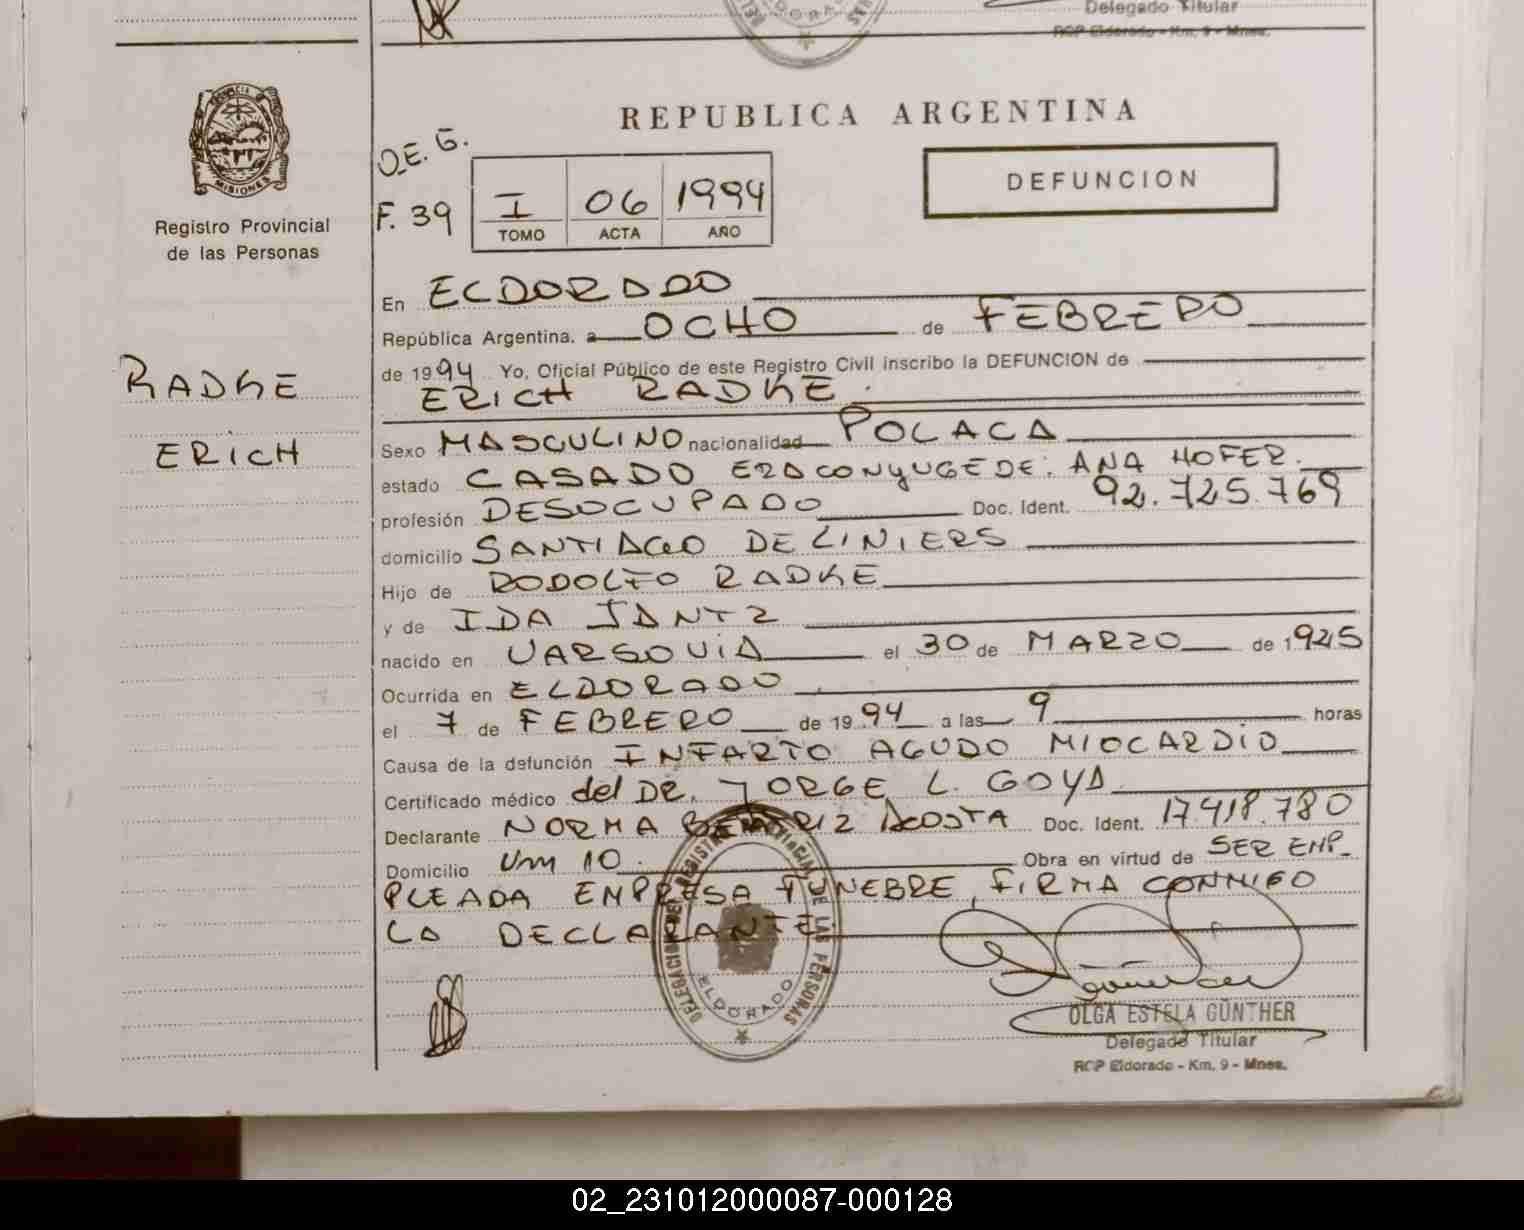 Delegado Titular
RCP Eldorado - Km. 9 - Mnes.
ELDORADO
PROVINCIA DE MISIONES
Registro Provincial
de las Personas
RADKE
ERICH
REPUBLICA ARGENTINA
DEFUNCION
F. 39
I 06 1994
TOMO ACTA AÑO
En ELDORADO
República Argentina, a OCHO de FEBRERO
de 1994 Yo, Oficial Público de este Registro Civil inscribo la DEFUNCION de
ERICH RADKE.
Sexo MASCULINO nacionalidad POLACA
estado CASADO ERA CONYUGE DE: ANA HOFER.
profesión DESOCUPADO Doc. Ident. 92.725.769
domicilio SANTIAGO DE LINIERS
Hijo de RODOLFO RADKE
y de IDA JANTZ
nacido en VARSOVIA el 30 de MARZO de 1925
Ocurrida en ELDORADO
el 7 de FEBRERO de 1994 a las 9 horas
Causa de la defunción INFARTO AGUDO MIOCARDIO
Certificado médico del DR. JORGE L. GOYA
Declarante NORMA BEATRIZ ACOSTA Doc. Ident. 17.418.780
Domicilio Km 10. Obra en virtud de SER EMP-
PLEADA EMPRESA FUNEBRE, FIRMA CONMIGO
LA DECLARANTE
DELEGACION DEL REGISTRO PROVINCIAL DE LAS PERSONAS
ELDORADO
OLGA ESTELA GÜNTHER
Delegado Titular
RCP Eldorado - Km. 9 - Mnes.
02_231012000087-000128